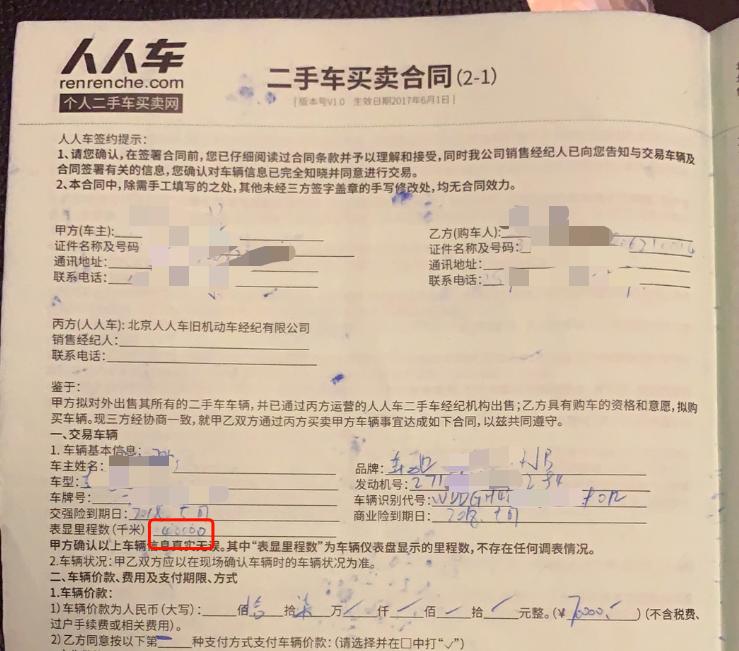 人人车
renrenche.com
个人二手车买卖网
二手车买卖合同(2-1)
[ 版本号V1.0 生效日期2017年6月1日 ]
人人车签约提示:
1、请您确认,在签署合同前,您已仔细阅读过合同条款并予以理解和接受,同时我公司销售经纪人已向您告知与交易车辆及
合同签署有关的信息,您确认对车辆信息已完全知晓并同意进行交易。
2、本合同中,除需手工填写的之处,其他未经三方签字盖章的手写修改处,均无合同效力。
甲方(车主):
证件名称及号码
通讯地址:
联系电话:
乙方(购车人):
证件名称及号码:
通讯地址:
联系电话:
丙方(人人车): 北京人人车旧机动车经纪有限公司
销售经纪人:
联系电话:
鉴于:
甲方拟对外出售其所有的二手车车辆,并已通过丙方运营的人人车二手车经纪机构出售;乙方具有购车的资格和意愿,拟购
买车辆。现三方经协商一致,就甲乙双方通过丙方买卖甲方车辆事宜达成如下合同,以兹共同遵守。
一、交易车辆
1. 车辆基本信息:
车主姓名:
车型:
车牌号:
交强险到期日: 2018. 十月
表显里程数(千米) 40000
品牌:
发动机号: 271
车辆识别代号: WDDGH4
商业险到期日: 2018. 十月
甲方确认以上车辆信息真实无误。其中“表显里程数”为车辆仪表盘显示的里程数,不存在任何调表情况。
2.车辆状况:甲乙双方应以在现场确认车辆时的车辆状况为准。
二、车辆价款、费用及支付期限、方式
1.车辆价款:
1) 车辆价款为人民币(大写): 佰 拾 万 仟 佰 拾 元整。(¥ 70000 ) (不含税费、
过户手续费或相关费用)。
2)乙方同意按以下第 种支付方式支付车辆价款: (请选择并在□中打“✓”)